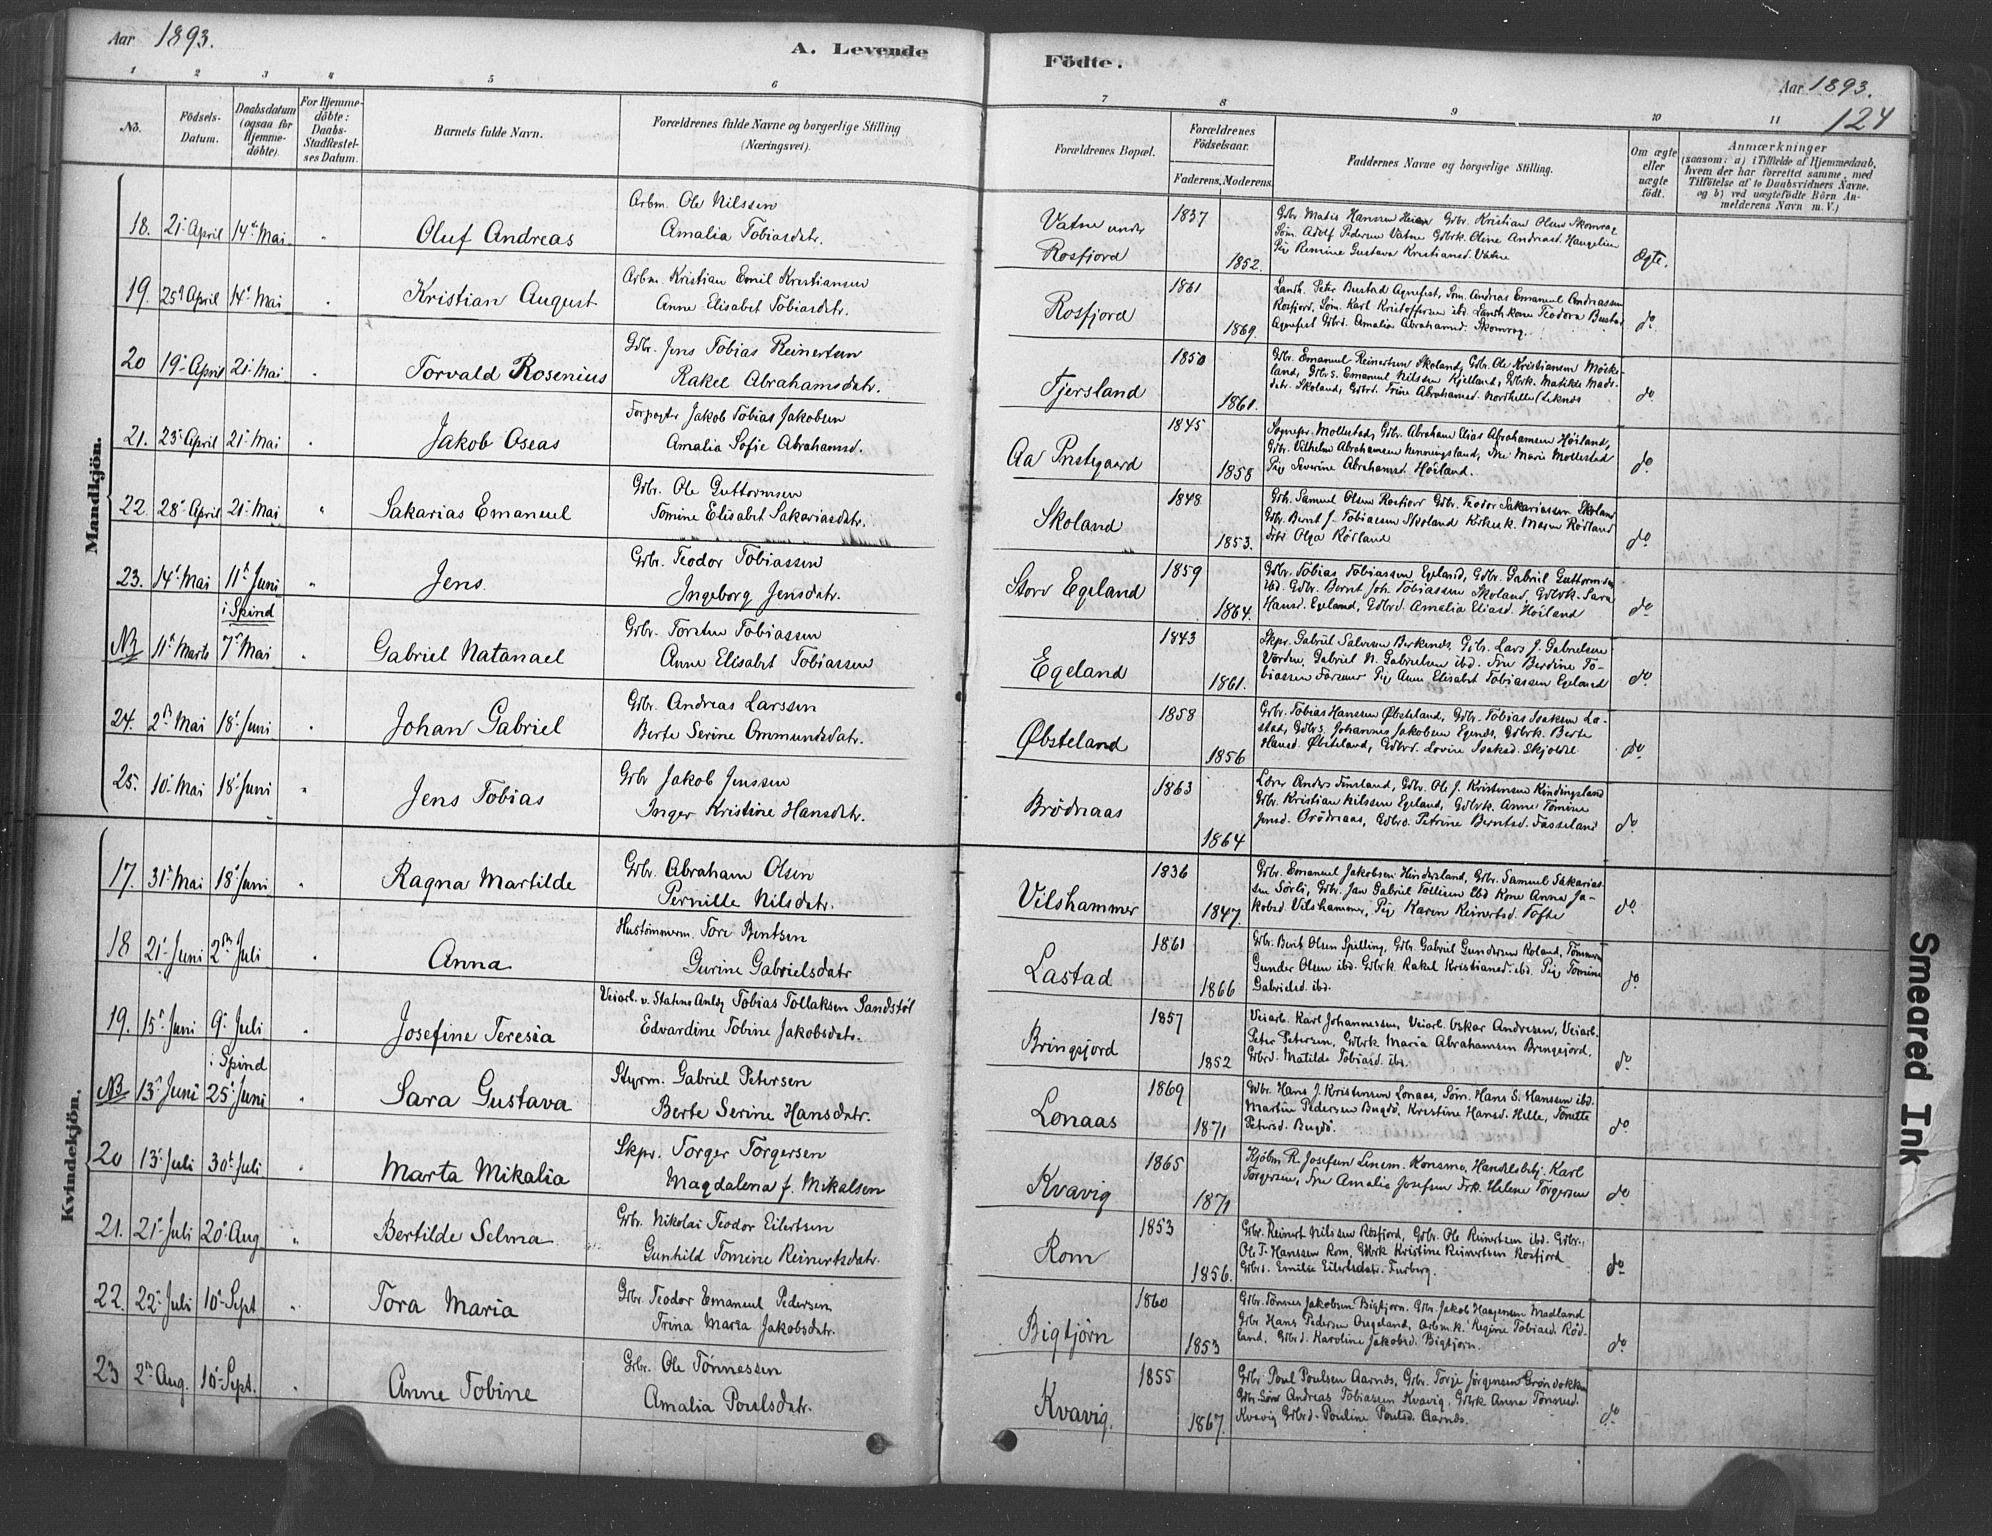 Aar 1893.
A. Levende
Födte.
Aar 1893.
124
1 2 3 4 5 6 7 8 9 10 11
No.
Födsels-
Datum.
Daabsdatum
(ogsaa for
Hjemme-
döbte).
For Hjemme-
döbte:
Daabs-
Stadfæstel-
ses Datum.
Barnets fulde Navn.
Forældrenes fulde Navne og borgerlige Stilling
(Næringsvei).
Forældrenes Bopæl.
Forældrenes
Födselsaar.
Faderens. Moderens.
Faddernes Navne og borgerlige Stilling.
Om ægte
eller
uægte
födt.
Anmærkninger
(saasom: a) i Tilfælde af Hjemmedaab,
hvem der har forrettet samme, med
Tilföielse af to Daabsvidners Navne.
og b) ved uægtefödte Börn An-
melderens Navn m. V.)
Mandkjön.
18. 21. April 14de Mai "
Oluf Andreas
Arbm. Ole Nilssen
Amalia Tobiasdatr.
Vatne under
Rosfjord
1837
1852.
Gbr. Matis Hanssen Heien Gbr. Kristian Olsen Skomrag
Søm. Adolf Pedersen Vatne Gdbrk. Oline Andreasd. Haugelien
Pig Remine Gustava Kristiansd. Vatne
Ægte.
19. 25de April 14de Mai "
Kristian August
Arbm. Kristian Emil Kristiansen
Anne Elisabet Tobiasdatr.
Rosfjord
1861
1869.
Landh. Peter Bustad Agnefest, Søm. Andreas Emanuel Andreassen
Rosfjord, Søm. Karl Kristoffersen ibd. Landhkone Teodora Bustad
Agnefest Gbrd. Amalia Abrahamsd. Skomrag.
do.
20 19. April 21. Mai "
Torvald Rosenius
Gbr. Jens Tobias Reinertsen
Rakel Abrahamsdatr.
Tjersland
1850
1861.
Gbr. Emanuel Reinertsen Skoland, Gbr. Ole Kristiansen Möcke-
land, Gbr.s. Emanuel Nilssen Kjelland, Gdbrk. Matilde Mads-
datr. Skoland, Gbrd. Trine Abrahamsd. Nordhelle (Leknes
do
21. 23. April 21. Mai "
Jakob Oseas
Forpagter Jakob Tobias Jakobsen
Amalia Sofie Abrahamsd.
Aa Prestegaard
1845
1858
Sognepr. Mollestad, Gbr. Abraham Elias Abrahamsen Höiland,
Gbr. Vilhelm Abrahamsen Nenningsland, Fru Marie Mollestad
Pig Severine Abrahamsd. Höiland.
do.
22 28. April 21. Mai "
Sakarias Emanuel
Gbr. Ole Guttormsen
Tomine Elisabet Sakariasdatr.
Skoland
1848
1853.
Gbr. Samuel Olsen Rosfjord Gbr. Teodor Sakariassen Skoland
Gbr. Bernt J. Tobiassen Skoland Kirkesk. Maren Rödland
Frk. Olga Rödland
do.
23. 14. Mai 11te Juni "
Jens.
Gbr. Teodor Tobiassen
Ingeborg Jensdatr.
Store Egeland
1859
1864.
Gdbr. Tobias Tobiassen Egeland, Gdbr. Gabriel Guttormsen
ibd. Gdbr. Bernt Joh. Tobiassen Skoland, Gdbrk. Sara
Hansd. Egeland, Gdbrd. Amalia Eliasd. Höiland
do.
NB 11te Marts i Spind 7de Mai "
Gabriel Natanael
Gbr. Torsten Tobiassen
Anne Elisabet Tobiassen
Egeland
1843
1861.
Skpr. Gabriel Salvesen Berkenes, Gbr. Lars J. Gabrielsen
Vordn, Gabriel N. Gabrielsen ibd. Fru Berdine To-
biassen Farsund Pig Anne Elisabet Tobiassen Egeland
do.
24. 2den Mai 18. Juni "
Johan Gabriel
Gbr. Andreas Larssen
Berte Serine Ommundsdatr.
Øbsteland
1858
1856
Gbr. Tobias Hanssen Øbsteland, Gdbr. Tobias Isaksen La-
stad, Gdbr.s. Johannes Jakobsen Egenes, Gdbrk. Berte
Hansd. Øbsteland, Gdbrd. Lovine Isaksd. Skjoldal
do.
25. 10. Mai 18. Juni "
Jens Tobias
Gbr Jakob Jenssen
Inger Kristine Hansdatr.
Brödnaas
1863
1864
Lærer Anders Finsland, Gdbr. Ole J. Kristensen Kindingsland
Gbr. Kristian Nilssen Egeland, Gdbrk. Anne Tomine
Jensd. Brödnaas, Gdbrd. Petrine Berntsd. Fasseland
do.
Kvindekjön.
17. 31te Mai 18. Juni "
Ragna Martilde
Gbr. Abraham Olsen
Pernille Nilsdatr.
Vilshammer
1836
1847.
Gbr. Emanuel Jakobsen Hindersland, Gbr. Samuel Sakarias-
sen Sörli, Gbr. Jan Gabriel Tollisen ibd Kone Anna Ja-
kobsd. Vilshammer, Pig Karen Reinertsd. Tofte
do.
18 21. Juni 2den Juli "
Anna
Hustömmerm. Tore Bentsen
Gurine Gabrielsdatr
Lastad
1861
1866
Gbr. Berit Olsen Spilling, Gbr. Gabriel Gundersen Roland, Tömmerm
Gunder Olsen ibd. Gdbrk. Rakel Kristiansd. ibd. Pig Tomine
Gabrielsd. ibd.
do.
19. 15. Juni 9. Juli "
Josefine Teresia
Veiarb. v. Statne Anlæg Tobias Tollaksen Sandstöl
Edvardine Tobine Jakobsdatr.
Bringsjord
1857
1852
Veiarb. Karl Johannessen, Veiarb. Oskar Andresen, Veiarb.
Peter Petersen, Gdbrk Maria Abrahamsen Bringsjord,
Gbrd. Matilde Tobiasd. ibd.
do
NB 13. Juni i Spind 25. Juni "
Sara Gustava
Styrm. Gabriel Petersen
Berte Serine Hansdatr.
Lonaas
1869
1871
Gdbr. Hans J. Kristensen Lonaas, Søm. Hans S. Hanssen ibd.
Martin Pedersen Bugdö, Kristine Hansd. Hille, Tonette
Petersd. Bugdö.
do.
20 13. Juli 30te Juli "
Marta Mikalia
Skpr. Torger Torgersen
Magdalena f. Mikalsen
Kvavig
1865
1871
Kjöbm R. Josefsen Linem. Konsmo, Handelsbetj. Karl
Torgersen, Fru Amalia Josefsen Frk. Helene Torgersen
do
21. 21. Juli 20. Aug "
Bertilde Selma.
Gbr. Nikolai Teodor Eilertsen
Gunhild Tomine Reinertsdatr.
Rom
1853
1856.
Gbr. Reinert Nilssen Rosfjord, Gdbr. Ole Reinertsen ibd. Gdbr.
Ole T. Hanssen Rom, Gdbrk Kristine Reinertsen Rosfjord
Gbrd. Emilie Eilertsdatr. Furberg.
do
22. 22. Juli 10. Sept "
Tora Maria
Gbr. Teodor Emanuel Pedersen
Trina Maria Jakobsdatr.
Bigtjörn
1860
1853
Gbr. Tönnes Jakobsen Bigtjörn. Gbr. Jakob Haagensen Madland
Gbr Hans Pedersen Augeland, Arbm.k. Regine Tobiasd. Röd-
land, Gbrd. Karoline Jakobsd. Bigtjörn.
do
23 2den Aug. 10. Sept. "
Anne Tobine
Gbr. Ole Tönnessen
Amalia Poulsdatr.
Kvavig.
1855
1867.
Gbr Poul Poulsen Aarnes, Gbr. Torje Jörgensen Gröndokken
Gbr. Sön Andreas Tobiassen Kvavig, Gdbrk Anna Tönnesd.
Kvavig Gbrd. Pouline Poulsd. Aarnes.
do.
Smeared Ink